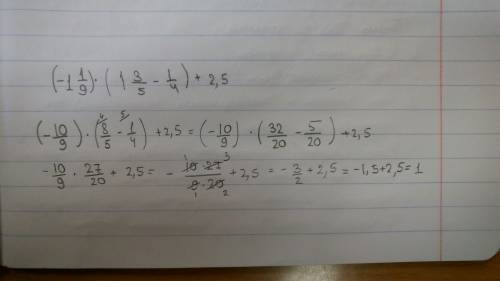 (-1 1/9) · (1 3/5 - 1/4) + 2,5
(-10/9) · (8/5 ⁴⁄ - 1/4 ⁵⁄) + 2,5 = (-10/9) · (32/20 - 5/20) + 2,5
-10/9 · 27/20 + 2,5 = - (10 ¹ · 27 ³)/(9 ₁ · 20 ₂) + 2,5 = -3/2 + 2,5 = -1,5+2,5=1